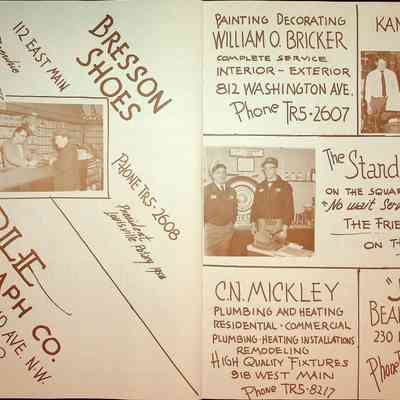 BRESSON
SHOES
112 EAST MAIN
PHONE TR5-2608
DLE
APH CO.
AVE N.W.
PAINTING DECORATING
WILLIAM O. BRICKER
COMPLETE SERVICE
INTERIOR - EXTERIOR
812 WASHINGTON AVE.
Phone TR5-2607
KAN
The Stand
ON THE SQUAR
"No wait Serv
THE FRIE
ON T
C.N. MICKLEY
PLUMBING AND HEATING
RESIDENTIAL - COMMERCIAL
PLUMBING-HEATING INSTALLATIONS
REMODELING
HIGH QUALITY FIXTURES
918 WEST MAIN
Phone TR5-8217
"J
BEA
230
Phone